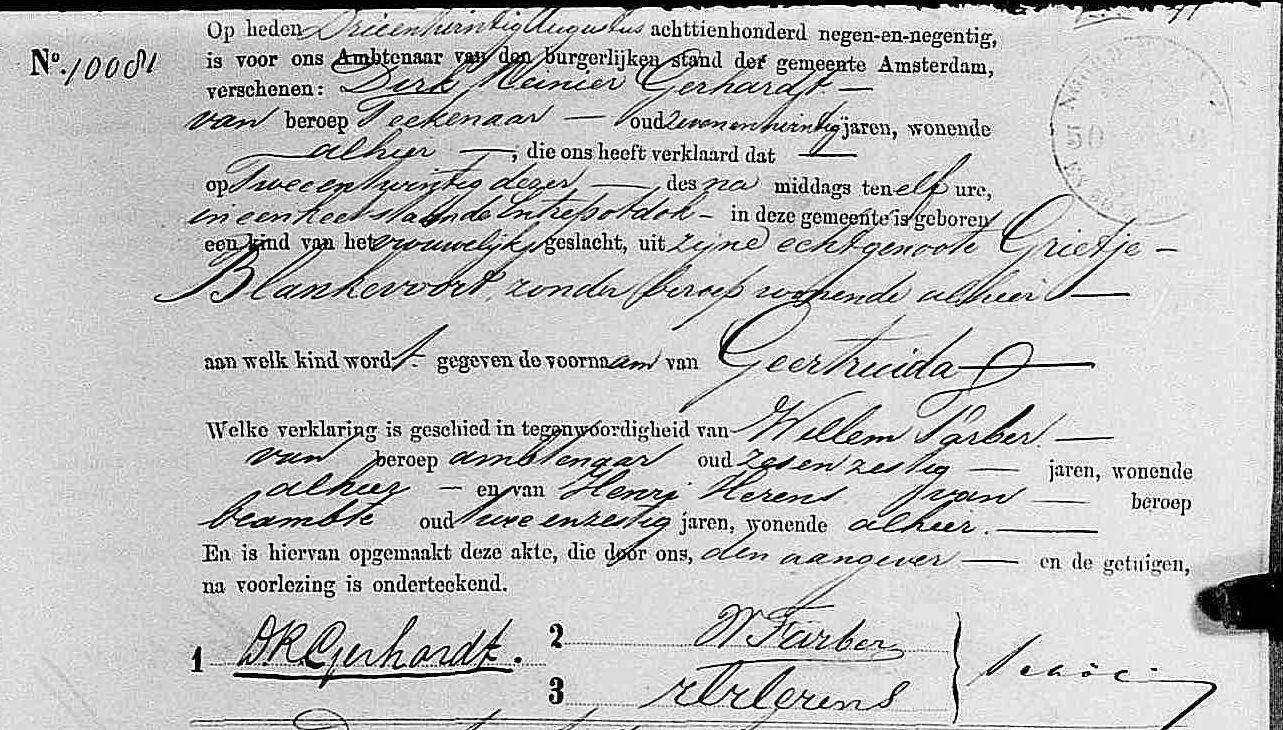 Op heden Drieentwintig Augustus achttienhonderd negen-en-negentig,
No. 10081 is voor ons Ambtenaar van den burgerlijken stand der gemeente Amsterdam,
verschenen: Dirk Reinier Gerhardt —
van beroep Teekenaar — oud zevenentwintig jaren, wonende
alhier —, die ons heeft verklaard dat —
op Tweeentwintig dezer — des na middags ten elf ure,
in een keet staande Entrepotdok – in deze gemeente is geboren
een kind van het vrouwelijke geslacht, uit zijne echtgenoote Grietje –
Blankevoort, zonder beroep wonende alhier —
aan welk kind wordt gegeven de voornaam van Geertruida —
Welke verklaring is geschied in tegenwoordigheid van Willem Färber. —
van beroep ambtenaar oud zesenzestig — jaren, wonende
alhier — en van Henri Herens van — beroep
beambte oud tweeenzestig jaren, wonende alhier. —
En is hiervan opgemaakt deze akte, die door ons, den aangever — en de getuigen,
na voorlezing is onderteekend.
1 DRGerhardt. 2 W Färber
3
50